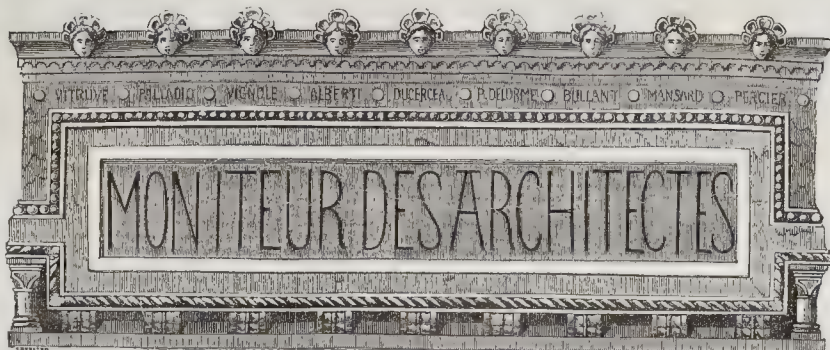 VITRUVE PALLADIO VIGNOLE ALBERTI DUCERCEA P. DELORME BULLANT MANSARD PERCIER
MONITEUR DES ARCHITECTES